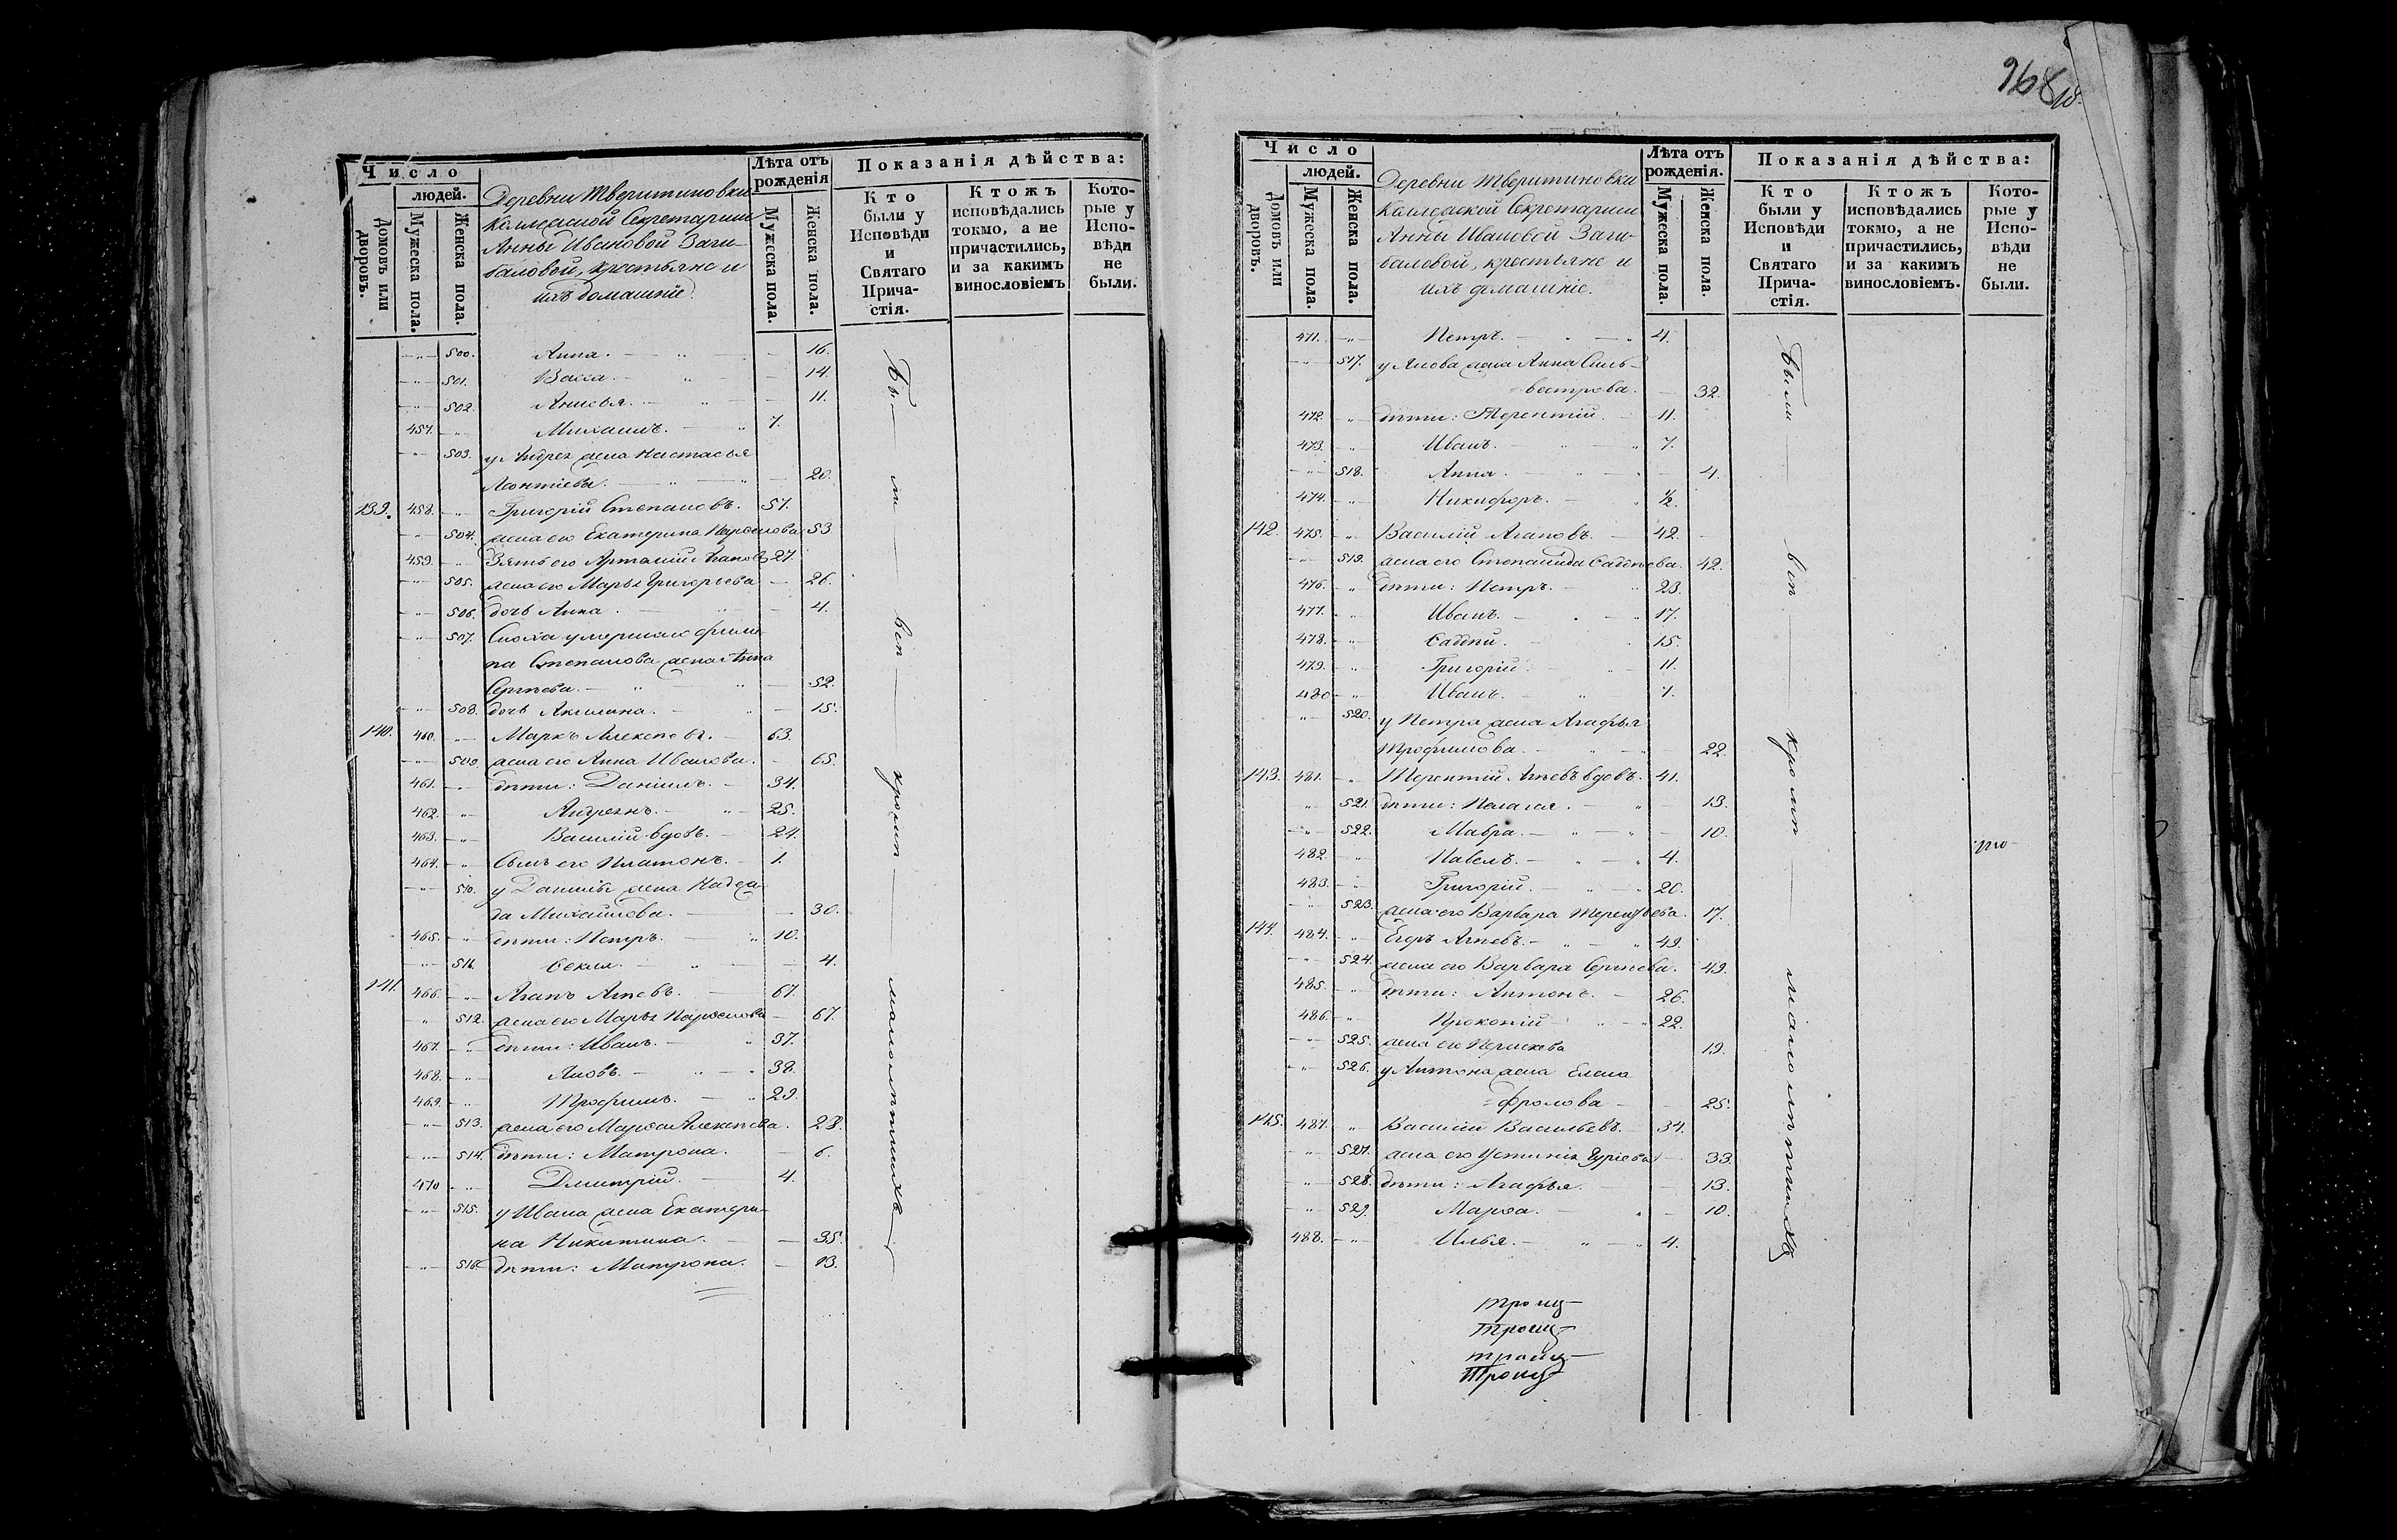 968 об.
Число
людей.
Домовъ или дворовъ.
Мужеска пола.
Женска пола.
Деревни Тверитиновки
Коллежской Секретарши
Анны Ивановой Заги-
баловой, крестьяне и
ихъ домашніе.
Лѣта отъ рожденія
Мужеска пола.
Женска пола.
Показанія дѣйства:
Кто были у Исповѣди и Святаго Причастія.
Ктожъ исповѣдались токмо, а не причастились, и за какимъ винословіемъ
Которые у Исповѣди не были.
500. Анна. 16.
501. Васса. 14.
502. Анисья. 11.
457. Михаилъ. 7.
503. у Андрея жена Настасья
Леонтіева. 20.
139. 458. Григорій Степановъ. 57.
504. жена его Екатерина Парѳенова 53
459. Зять его Артамій Агаповъ 27.
505. жена его Марья Григорьева 26.
506. дочь Анна. 4.
507. Сноха умершаго Фили-
па Степанова жена Анна
Сергѣева. 52.
508. дочь Акилина. 15.
140. 460. Маркъ Алексѣевъ. 63.
509. жена его Анна Иванова. 65.
461. дѣти: Даніилъ. 34.
462. Андреянъ. 25.
463. Василій вдовъ. 24.
464. Сынъ его Платонъ. 1.
510. у Даниилы жена Надеж
да Михайлова. 30.
465. дѣти: Петръ. 10.
511. Ѳекла. 4.
141. 466. Агапъ Агѣевъ. 67.
512. жена его Марья Парѳенова 67.
467. дѣти: Иванъ. 37.
468. Яковъ. 38.
469. Трофимъ. 29.
513. жена его Марѳа Алексѣева. 28.
514. дѣти: Матрона. 6.
470 Дмитрій. 4.
515. у Ивана жена Екатери-
на Никитина. 35.
516. дѣти: Матрона. 13.
Были всѣ кромѣ малолѣтнихъ
Число
людей.
Домовъ или дворовъ.
Мужеска пола.
Женска пола.
Деревни Тверитиновки
Коллежской Секретарши
Анны Ивановой Заги-
баловой, крестьяне и
ихъ домашніе.
Лѣта отъ рожденія.
Мужеска пола.
Женска пола.
Показанія дѣйства:
Кто были у Исповѣди и Святаго Причастія.
Ктожъ исповѣдались токмо, а не причастились, и за какимъ винословіемъ.
Которые у Исповѣди не были.
471. Петръ. 4.
517. у Якова жена Анна Силь-
вестрова. 32.
472. дѣти: Терентій. 11.
473. Иванъ. 7.
518. Анна. 4.
474. Никифоръ. ½.
142. 475. Василій Агаповъ. 42.
519. жена его Степанида Ѳаддѣева. 42.
476. дѣти: Петръ. 23.
477. Иванъ. 17.
478. Ѳаддѣй. 15.
479. Григорій. 11.
480 Иванъ. 7.
520. у Петра жена Агафья
Трофимова. 22.
143. 481. Терентій Агѣевъ вдовъ. 41.
521. дѣти: Пелагея. 13.
522. Мавра. 10.
482. Павелъ. 4.
483. Григорій. 20.
523. жена его Варвара Терентьева. 17.
144. 484. Егоръ Агѣевъ. 49.
524. жена его Варвара Сергѣева. 49.
485. дѣти: Антонъ. 26.
486. Прокопій 22.
525. жена его 19.
526. у Антона жена Елена
Фролова 25.
145. 487. Василій Васильевъ. 34.
527. жена его Устинія Гуріева 33.
528. дѣти: Агафья. 13.
529. Марѳа. 10.
488. Илья. 4.
Были всѣ кромѣ малолѣтнихъ
Троиц-
Троиц-
троиц-
Троиц-